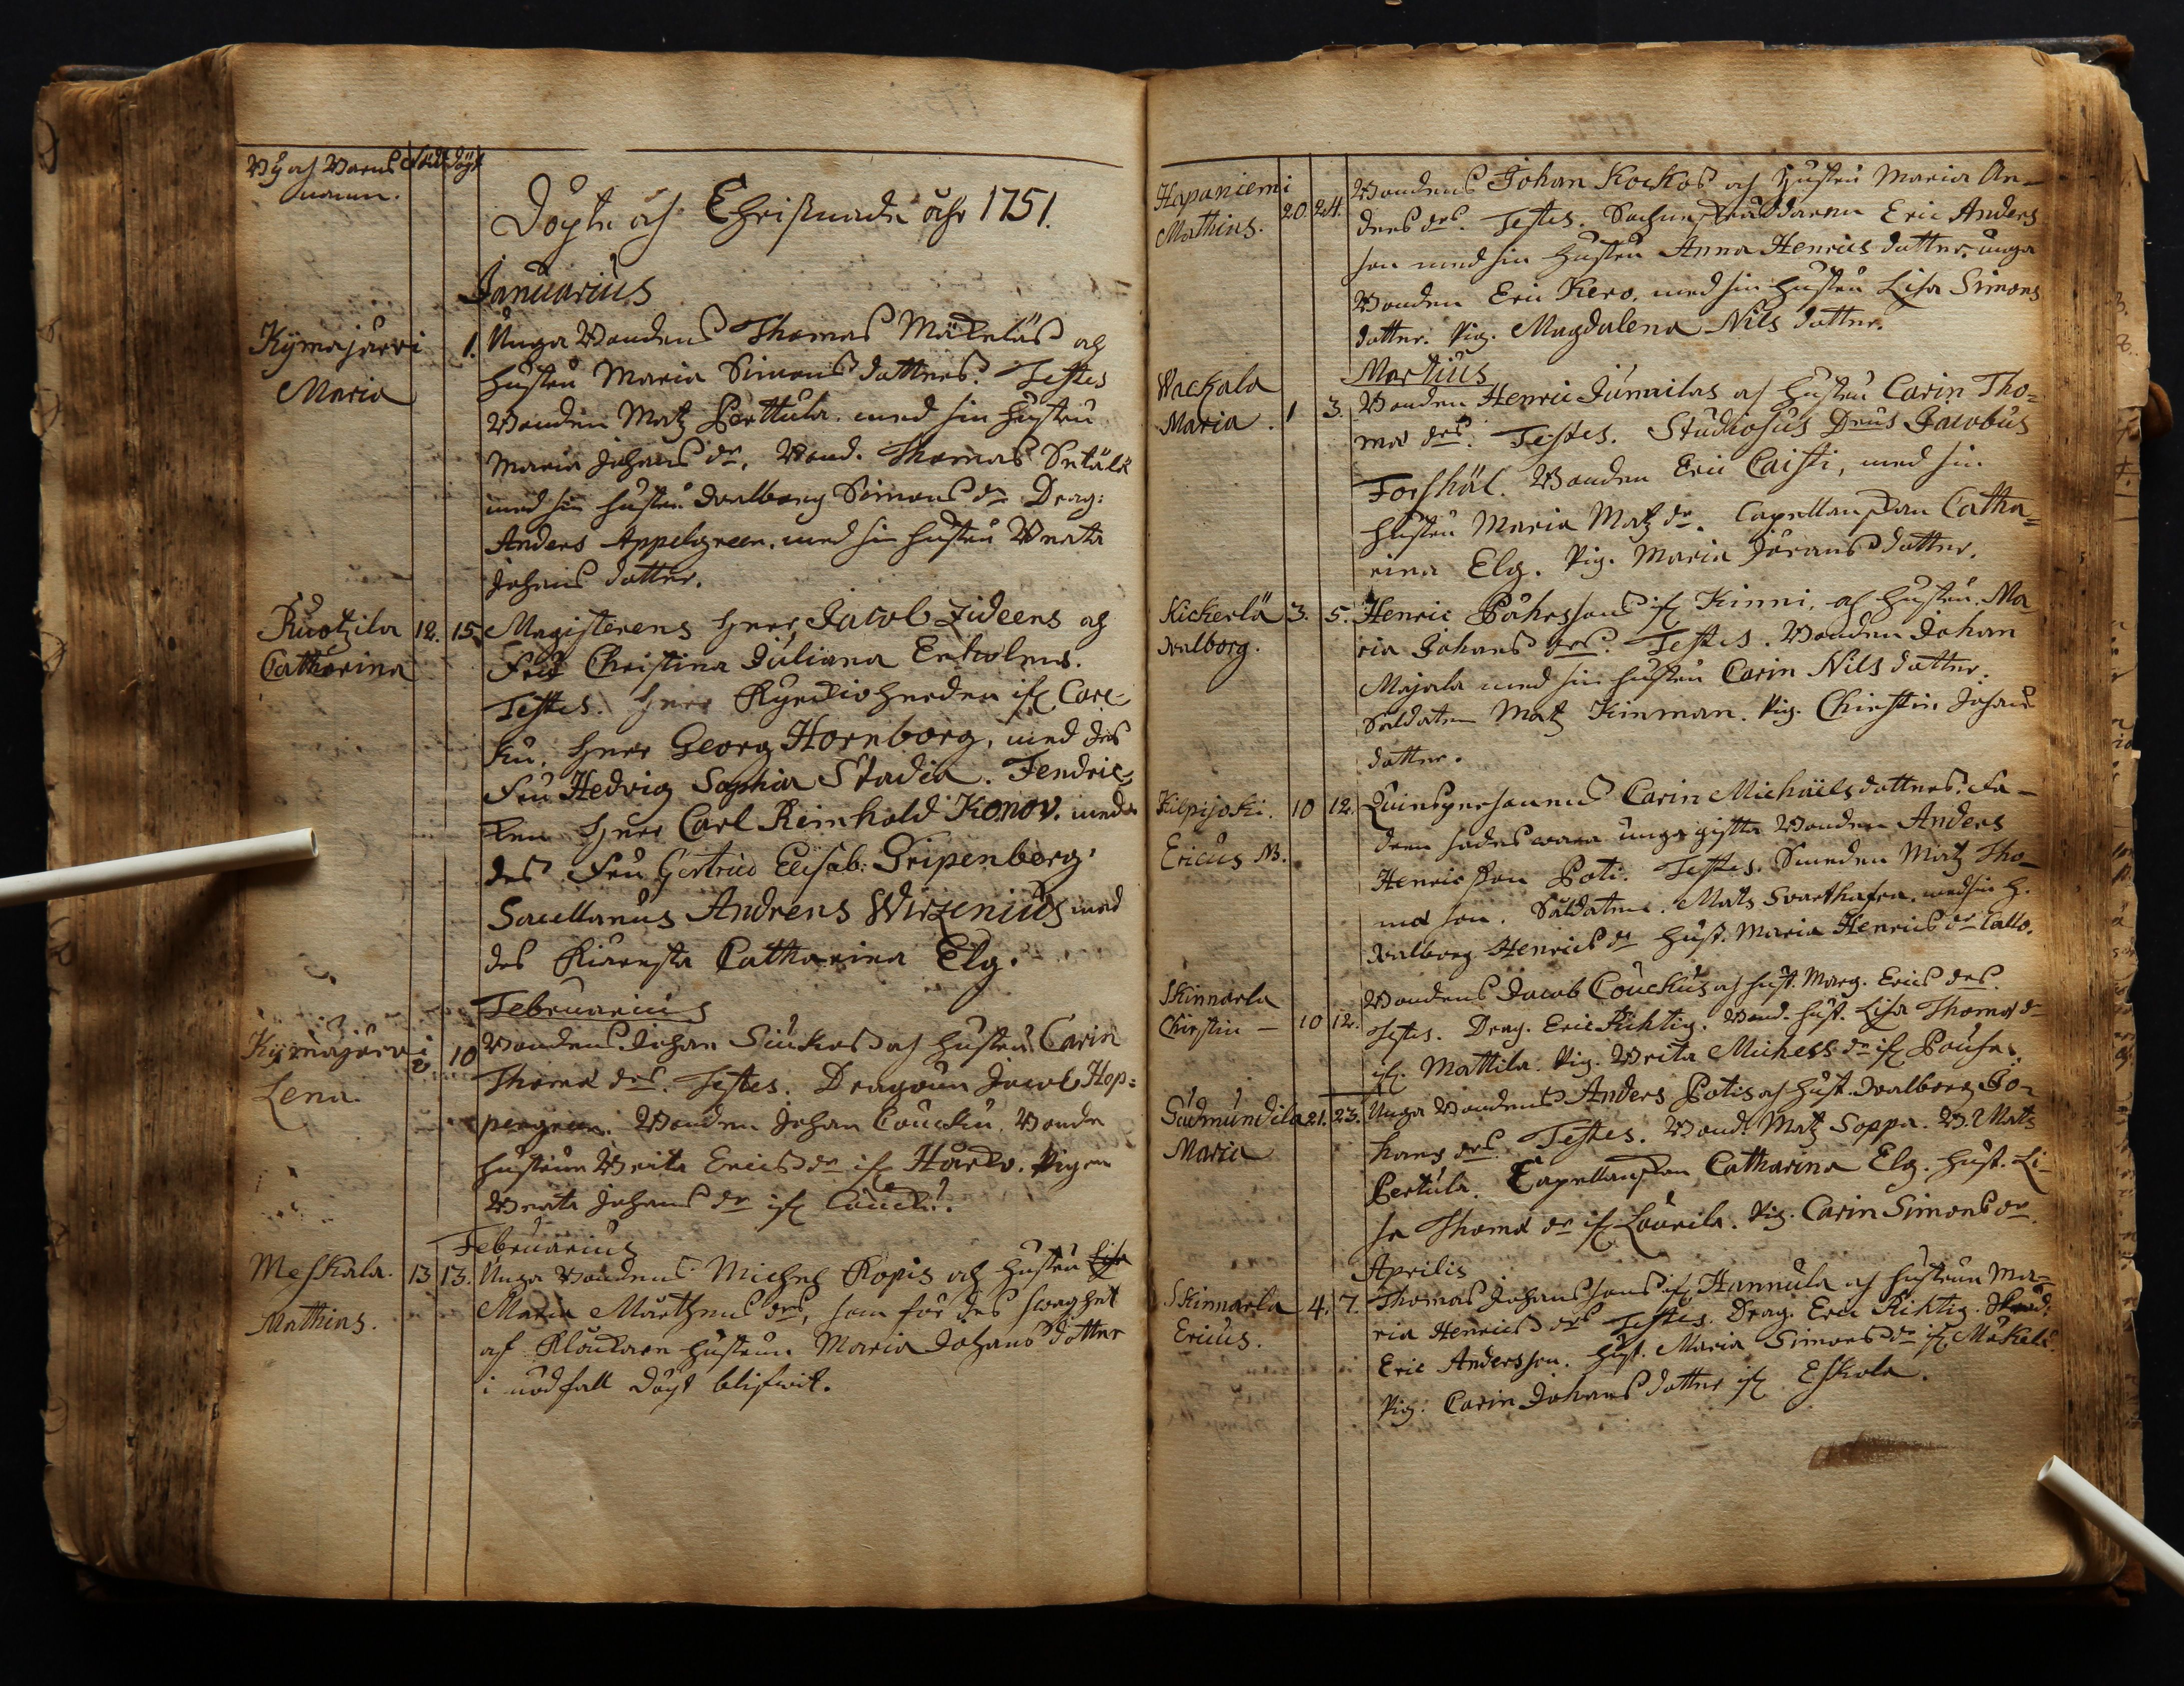 By och Barns Född Döpt
namn.
Döpte och Christnade åhr 1751.
Januarius
Kÿmäjärvi 1. Unga Bondens Thomas Mäkeläs och
Maria hustru Maria Simons dotters. Testes
Bonden Matz Perttula med sin hustru
Maria Johans dr. Bond. Thomas Sutälä
med sin hustru Walborg Simons dr Drag:
Anders Appelgreen, med sin hustru Beata
Johans dotter.
Ruotzila 12. 15. Magisterens herr Jacob Zideens och
Catharina Fru Christina Juliana Enkolms.
Testes. herr
herr Georg Hornborg, med des
Fru Hedvig Sophia Stadia. Fendric-
ken herr Carl Reinhold Konov. med
des Fru Gertrud Elisab: Gripenberg.
Sacellanus Andreas Wirzenius med
des Kiäresta Catharina Elg.
Februarius
Kÿmäjärvi 10 Bondens Johan Siukos och hustru Carin
Lena. Thomæ drs. Testes. Dragoun Jacob Hop=
pengreen. Bonden Johan Coucku. Bonde
hustrun Brita Erics dr ifr. Harko. Pigan
Beata Johans dr ifr. Coucku.
Februarius
Meskala. 13 13. Unga Bondens Michel Ropis och hustru Lisa
Mathias. Maria Märthens drs, som för des swaghet
af Klockare hustrun Maria Johans dotter
i nödfall döpt blifwit.
Hapaniemi 20. 24. Bondens Johan Kockos och hustru Maria An-
Mathias. ders drs. Testes. Eric Anders
son med sin hustru Anna Henrics dotter. unga
Bonden Eric Kero. med sin hustru Lisa Simons
dotter. Pig. Magdalena Nils dotter.
Martius
Wackala Bonden Henric Junnilas och hustru Carin Tho=
Maria. 1 3. mæ drs. Testes. Studiosus Dnus Jacobus
Forskål. Bonden Eric Caisti, med sin
hustru Maria Matz dr. Capellanskan Catha=
rina Elg. Pig. Maria Jörans dotter.
Kickerlä 3. 5. Henric Påhrssons ifr. Kinni, och hustru Ma
Walborg. ria Johans drs. Testes. Bonden Johan
Majala med sin hustru Carin Nils dotter.
Soldaten Matz Kinman. Pig. Chirstin Johans
dotter.
Kilpijoki. 10 12. Quinspersonens Carin Michaels dotters. Fa-
Ericus NB. dren sades wara unga gifta Bonden Anders
Henricsson Poti. Testes. Smeden Matz Tho-
mæ son. Soldaten. Mats Svarthafra. med sin h.
Walborg Henrics dr hust. Maria Henrics dr Callo.
Skinnarla Bondens Jacob Couckus och hust. Marg. Erics drs.
Chirstin - 10 12. Testes. Drag. Eric Richtig. Bond. hust. Lisa Thomæ dr
ifr. Mattila. Pig. Brita Michels dr ifr. Pousa.
Gudmundila 21. 23. Unga Bondens Anders Potis och hust. Walborg Jo-
Maria hans drs. Testes. Bond. Matz Soppa. B. Mats
Pertula. Capellanskan Catharina Elg. hust. Li-
sa Thomæ dr ifr. Laurila. Pig. Carin Simons dr.
Aprilis
Skinnarla 4. 7. Thomas Johans sons ifr. Hannula och hustrun Ma-
Ericus. ria Henrics drs Testes. Drag. Eric Richtig.
Eric Andersson. hust. Maria Simons dr ifr. Mäkelä.
Pig. Carin Johans dotter ifr. Eskola.